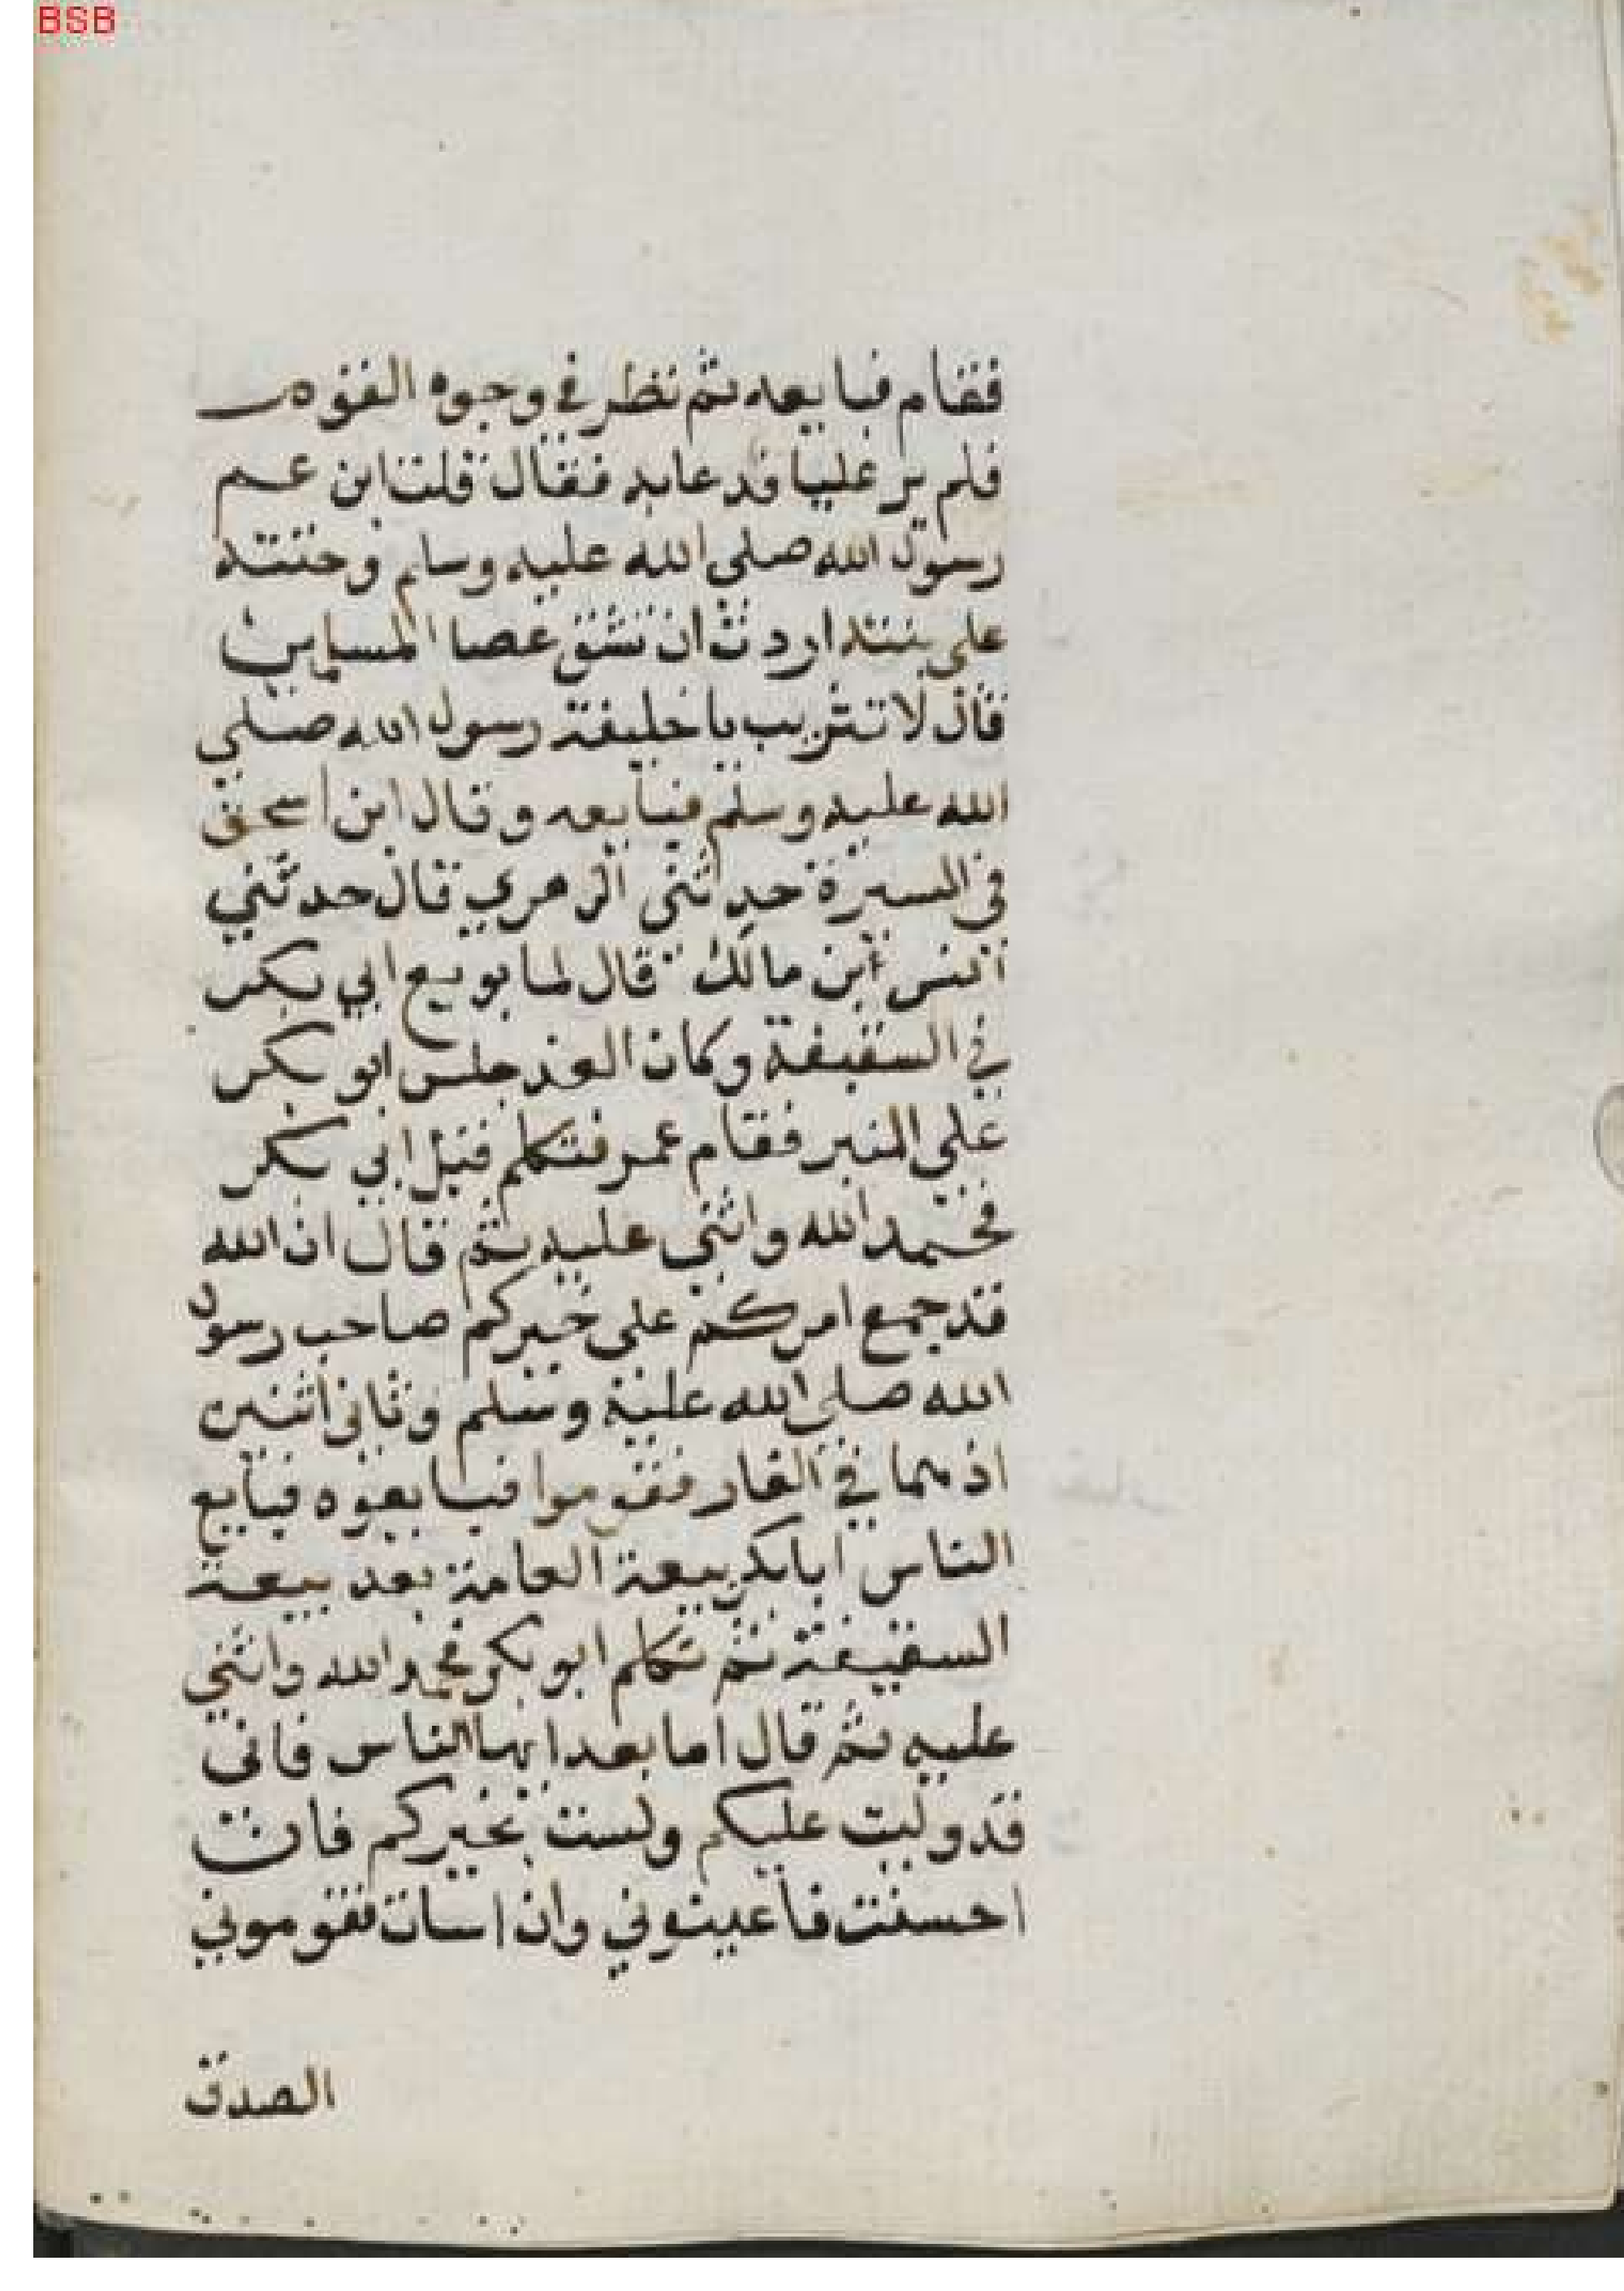 BSB
فقام فبايعه ثم نظر في وجوه القوم
فلم ير عليا فدعا به فقال قلت ابن عم
رسول الله صلى الله عليه وسلم وختنه
على بنته اردت ان تشق عصا المسلمين
قال لا تثريب يا خليفة رسول الله صلي
الله عليه وسلم فبايعه وقال ابن اسحق
في السيرة حدثني الزهري قال حدثني
انس ابن مالك قال لما بويع ابي بكر
في السقيفة وكان الغد جلس ابو بكر
علي المنبر فقام عمر فتكلم قبل ابي بكر
فحمد الله واثني عليه ثم قال ان الله
قد جمع امركم على خيركم صاحب رسول
الله صلى الله عليه وسلم وثاني اثنين
اذ هما في الغار فقوموا فبايعوه فبايع
الناس ابا بكر بيعة العامة بعد بيعة
السقيفة ثم تكلم ابو بكر فحمد الله واثني
عليه ثم قال اما بعد ايها الناس فاني
قد وليت عليكم ولست بخيركم فان
احسنت فاعينوني وان اسات فقوموني
الصدق